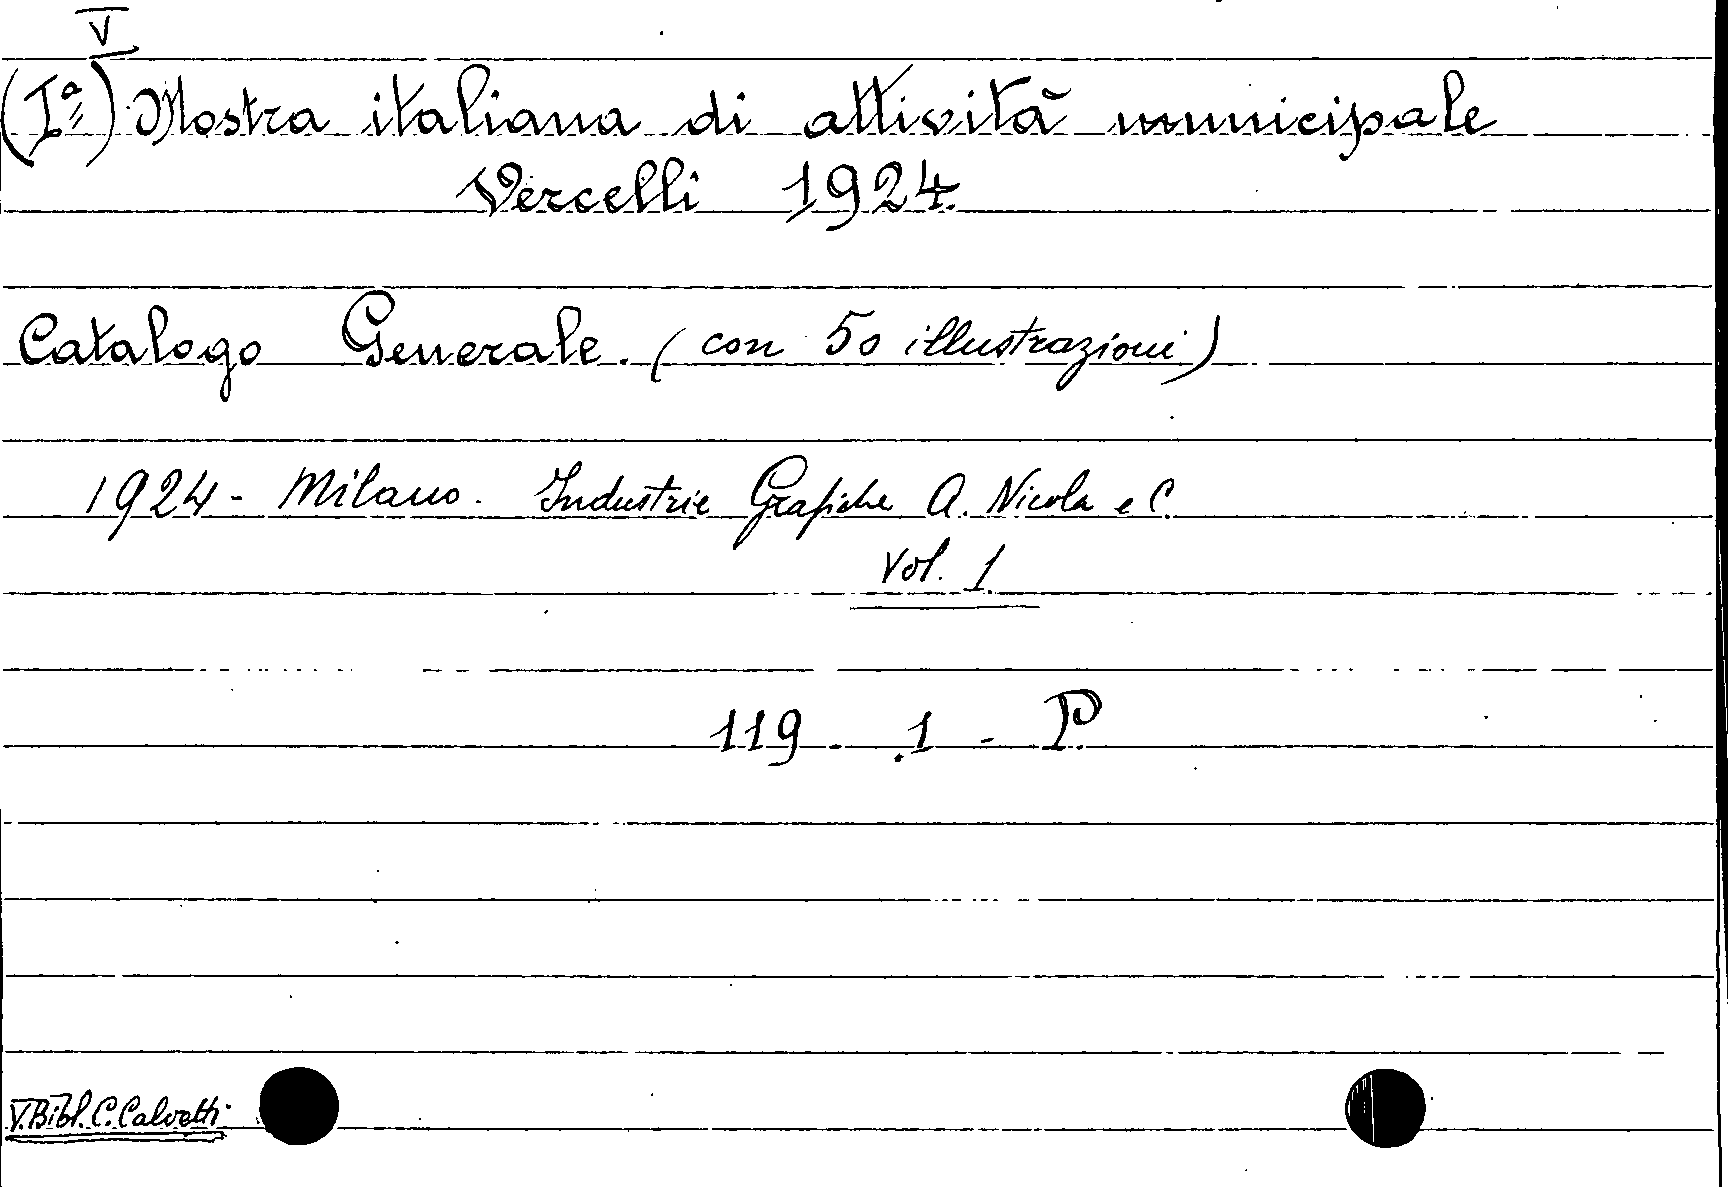 V
(Iª) Mostra italiana di attività municipale
Vercelli 1924.
Catalogo Generale. (con 50 illustrazioni)
1924 - Milano. Industrie Grafiche A. Nicola e C.
Vol. 1.
119 - 1 - P.
V. Bibl. C. Calvetti